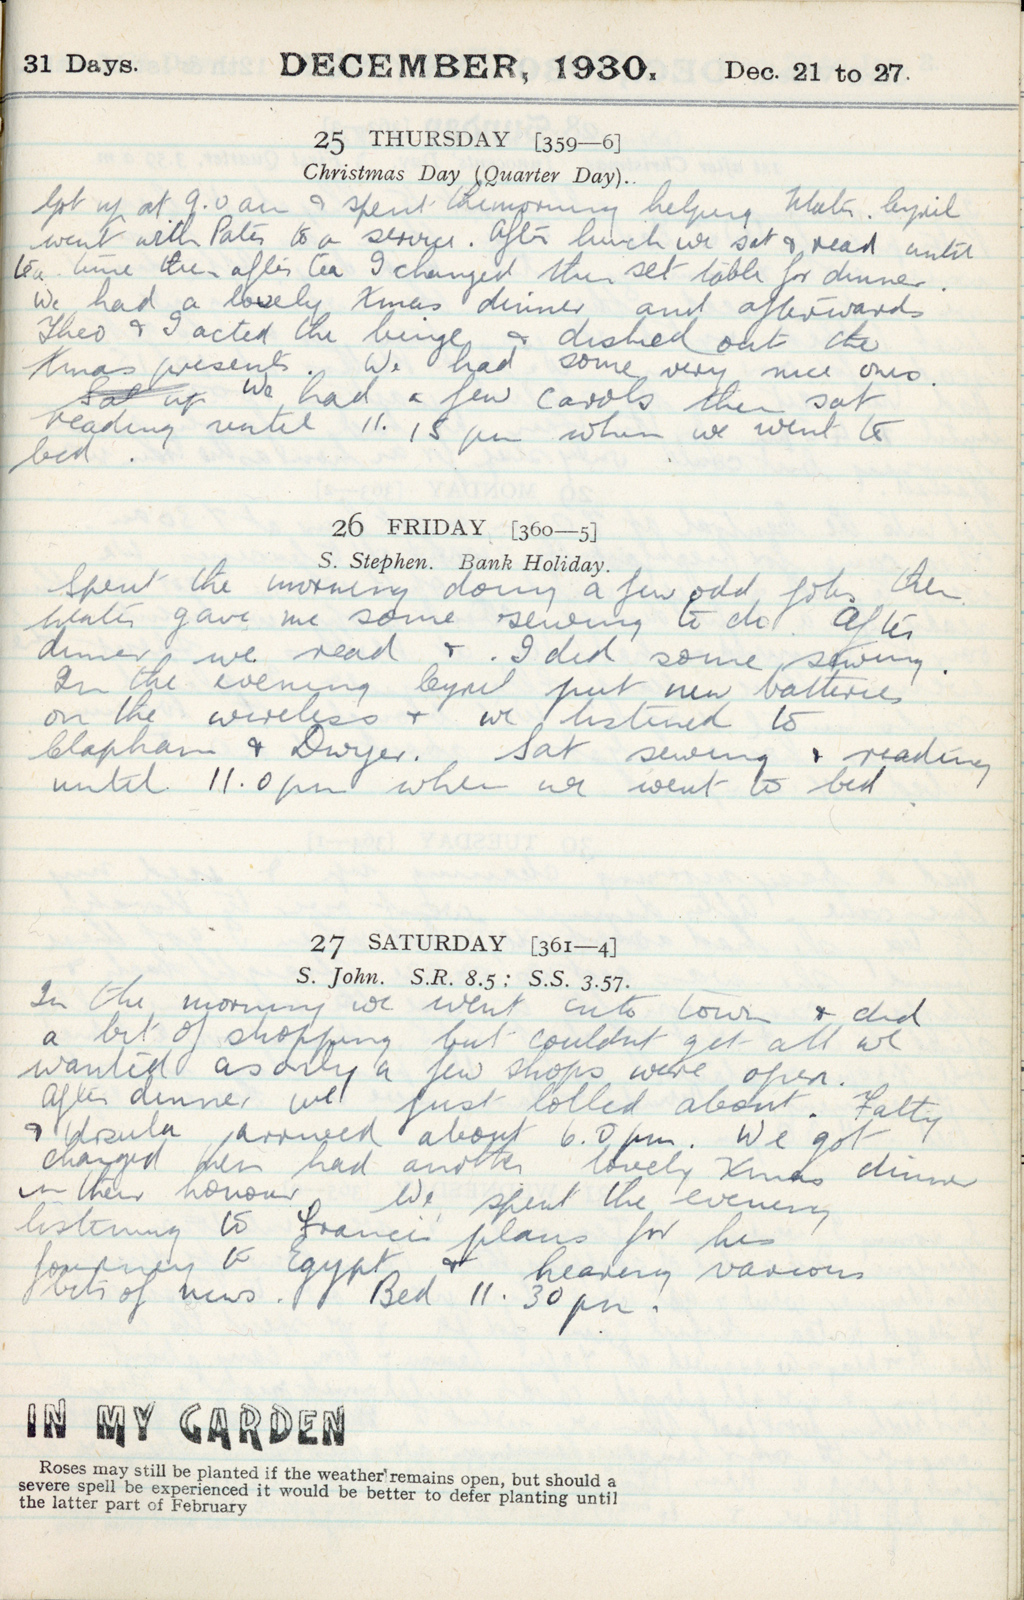 31 Days. DECEMBER, 1930. Dec. 21 to 27.
25 THURSDAY [359—6]
Christmas Day (Quarter Day)..
Got up at 9.0 am & spent the morning helping Mater. Cyril
went with Pater to a service. After lunch we sat & read until
tea time then after tea I changed then set table for dinner.
We had a lovely Xmas dinner and afterwards
Theo & I acted the & dished out the
Xmas presents. We had some very nice ones.
Sat up We had a few carols then sat
reading until 11.15 pm when we went to
bed.
26 FRIDAY [360—5]
S. Stephen. Bank Holiday.
Spent the morning doing a few odd jobs then
Mater gave me some sewing to do. After
dinner we read & I did some sewing.
In the evening Cyril put new batteries
on the wireless & we listened to
Clapham & Dwyer. Sat sewing & reading
until 11.0 pm when we went to bed
27 SATURDAY [361—4]
S. John. S.R. 8.5; S.S. 3.57.
In the morning we went into town & did
a bit of shopping but couldnt get all we
wanted as only a few shops were open.
After dinner we just lolled about. Fatty
& Ursula arrived about 6.0 pm. We got
changed then had another lovely Xmas dinner
in their honour. We spent the evening
listening to Francis' plans for his
journey to Egypt & hearing various
bits of news. Bed 11.30 pm.
IN MY GARDEN
Roses may still be planted if the weather remains open, but should a
severe spell be experienced it would be better to defer planting until
the latter part of February